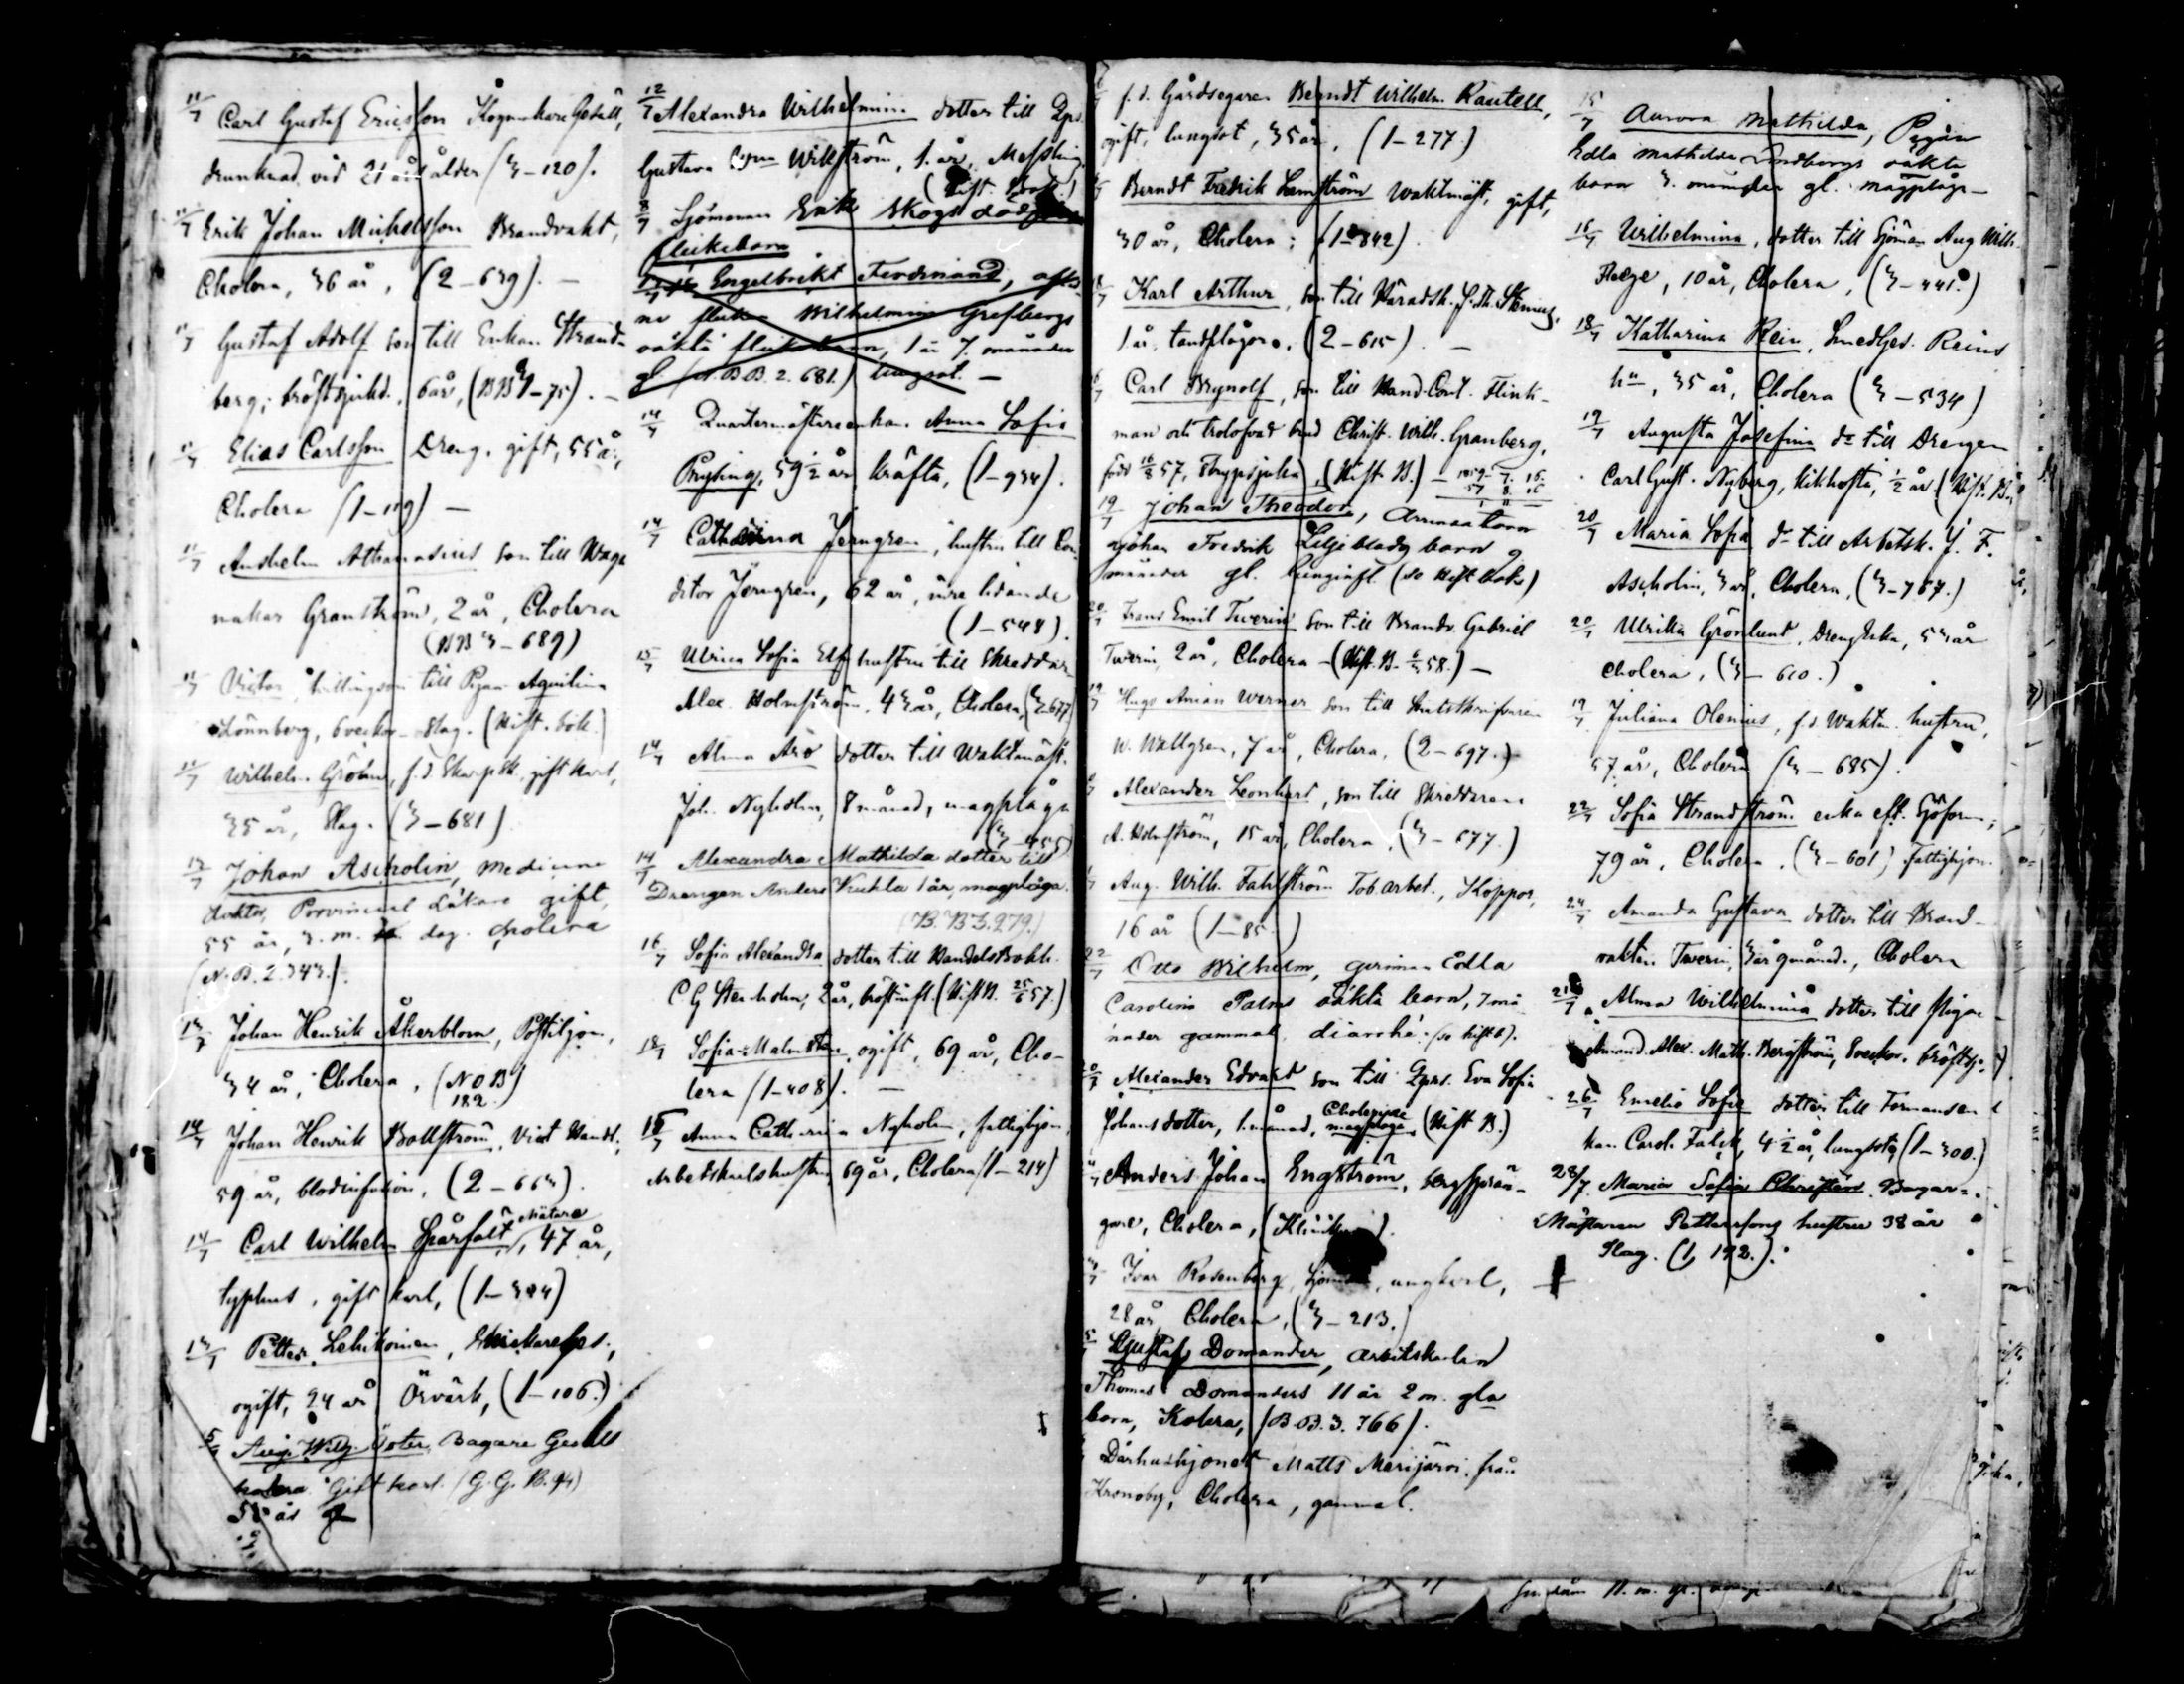 11/7 Carl Gustaf Ericsson
drunknad vid 21 års ålder (3-120).
Erik Johan Michelsson Brandvakt,
Cholera, 36 år, (2-639). -
Gustaf Adolf son till Enkan Strand-
berg, bröstsjukd., 6 år, (BB 1-75). -
Elias Carlsson Dreng, gift, 55 år,
Cholera (1-119) -
11/7 Anshelm Athanasius son till Wagn
makar Granström, 2 år, Cholera
(BB 3-689)
Victor, tvillingson till Pigan Aquilina
Lönnberg, 6 veckor - Slag. (Hift. bok.)
Wilhelm Gröhn, f.d. gift karl,
35 år, Slag. (3-681)
12/7 Johan Ascholin, medicine
doktor, Provincial Läkare gift,
55 år, 3. m. dag. cholera
(N.B. 2.343.)
13/7 Johan Henrik Åkerblom, Postiljon,
34 år, Cholera, (NOB)
182
14/7 Johan Henrik Bollström, Vict Handl.
59 år, (2-663).
14/7 Carl Wilhelm Spårfält, Mätare 47 år,
typhus, gift karl, (1-324)
13/7 Petter Lehikoinen,
ogift, 24 år (1-106.)
5/7 Aug. Wilh. Öster, Bagare Gesäll
kolera Gift karl (G.G.B. 94)
år
12/7 Alexandra Wilhelmina dotter till
Gustava Wikström, 1. år, Messling
(Hift. Bok.)
8/7 Sjömannen Erik Skogs
flickebarn
Engelbrekt Ferdinand,
Wilhelmina Grefbergs
oäkta 1 år 7. månader
gl (N.B.B. 2. 681.) lungsot. -
14/7 Quartermästareenkan Anna Sofia
Pryssing, 59 1/2 år kräfta, (1-934).
14/7 Catharina Jerngren, hustru till Con
ditor Jerngren, 62 år, inre lidande
(1-548).
15/7 Ulrica Sofia Elf hustru till Skreddar
Alex. Holmström, 43 år, Cholera, (3-677)
14/7 Alma dotter till Waktmäst.
Joh. Nyholm, 8 månad, magplåga
(3-455)
14/7 Alexandra Mathilda dotter till
Drengen Anders Kukla 1 år, magplåga.
(B.B.3.279.)
16/7 Sofia Alexandra dotter till Handelsbokh.
C G Stenholm, 2 år, bröstinfl. (Hift B. 25/6 57.)
18/7 Sofia Malmsten, ogift, 69 år, Cho-
lera (1-408). -
18/7 Anna Catharina Nyholm, fattighjon,
Arbetskarlshustru, 69 år, Cholera (1-214)
f.d. Gårdsegaren Berndt Wilhelm Rautell,
gift, lungsot, 35 år, (1-277.)
Berndt Fredrik Lamström waktmäst. gift,
30 år, Cholera; (1-842).
Karl Arthur, son till Häradsh.
1 år, tandplågor. (2-615). -
Carl Brynolf, son till Hand.Cont. Flink-
man och trolofvad brud Christ. Wilh. Granberg,
född 16/8 57, Strypsjuka, (Hift. B.) - 1859. 7. 16.
57 8. 16
1 11
19/7 Johan Theodor,
Johan Fredrik Liljeblads barn 9
månader gl. lunginfl. (se Hift bok)
20/7 Frans Emil Tverin son till Brandv. Gabriel
Tverin, 2 år, Cholera - (Hift. B. 58.) -
19/7 Hugo Armin Werner son till
W. Wallgren, 7 år, Cholera, (2-697.)
Alexander Leonhard, son till Skreddaren
A. Holmström, 15 år, Cholera, (3-677.)
Aug. Wilh. Fahlström Tob.arbet., Koppor,
16 år (1-85.)
22/7 Otto Wilhelm, Edla
Carolina Palms oäkta barn, 7 må
nader gammal diarrhé. (se hift b).
20/7 Alexander Edvard son till Eva Sofia
Johansdotter, 1. månad, magplåga, (Hift B.)
Anders Johan Engström, bergsprän-
gare, Cholera,
Ivar Rosenberg, ungkarl,
28 år, Cholera, (3-213.)
Gustaf Domander, arbetskarlen
Thomas Domanders 11 år 2 m. gla
barn, Kolera, (B.B. 3. 766).
Dårhushjonet Matts Merijärvi från
Kronoby, Cholera, gammal.
15/7 Aurora Mathilda, Pigan
Edla Mathilda Lindbergs oäkta
barn 3. månader gl. magplåga -
16/7 Wilhelmina, dotter till Sjöman Aug Wilh.
10 år, Cholera, (3-441.)
18/7 Katharina Rein, Smedges. Reins
hu, 35 år, Cholera (3-534)
19/7 Augusta Josefina dr till Drengen
Carl Gust. Nyberg, Kikhosta, 1/2 år (Hift. B.)
20/7 Maria Sofia dr till Arbetsk. J. F.
Ascholin, 3 år, Cholera, (3-767.)
20/7 Ulrika Grönlund, Drengenka, 53 år
cholera, (3-610.)
19/7 Juliana Olenius, f.d. Waktm. hustru,
57 år, Cholera (3-685).
22/7 Sofia Strandström enka eft. Sjöform,
79 år, Cholera, (3-601) Fattighjon.
24/7 Amanda Gustava dotter till Brand-
vakten Tverin, 3 år 9 månad., Cholera
21/7 Alma Wilhelmina dotter till Pigan
Amand. Alex. Math. Bergström, 8 veckor, bröstsj.
26/7 Emelie Sofie dotter till Formansen
kan Carol. Falck, 4 1/2 år, lungsot, (1-300.)
28/7. Maria Sofia Christina Bagar-
Mästaren Pettersons hustru 38 år
Slag. (1, 192.).